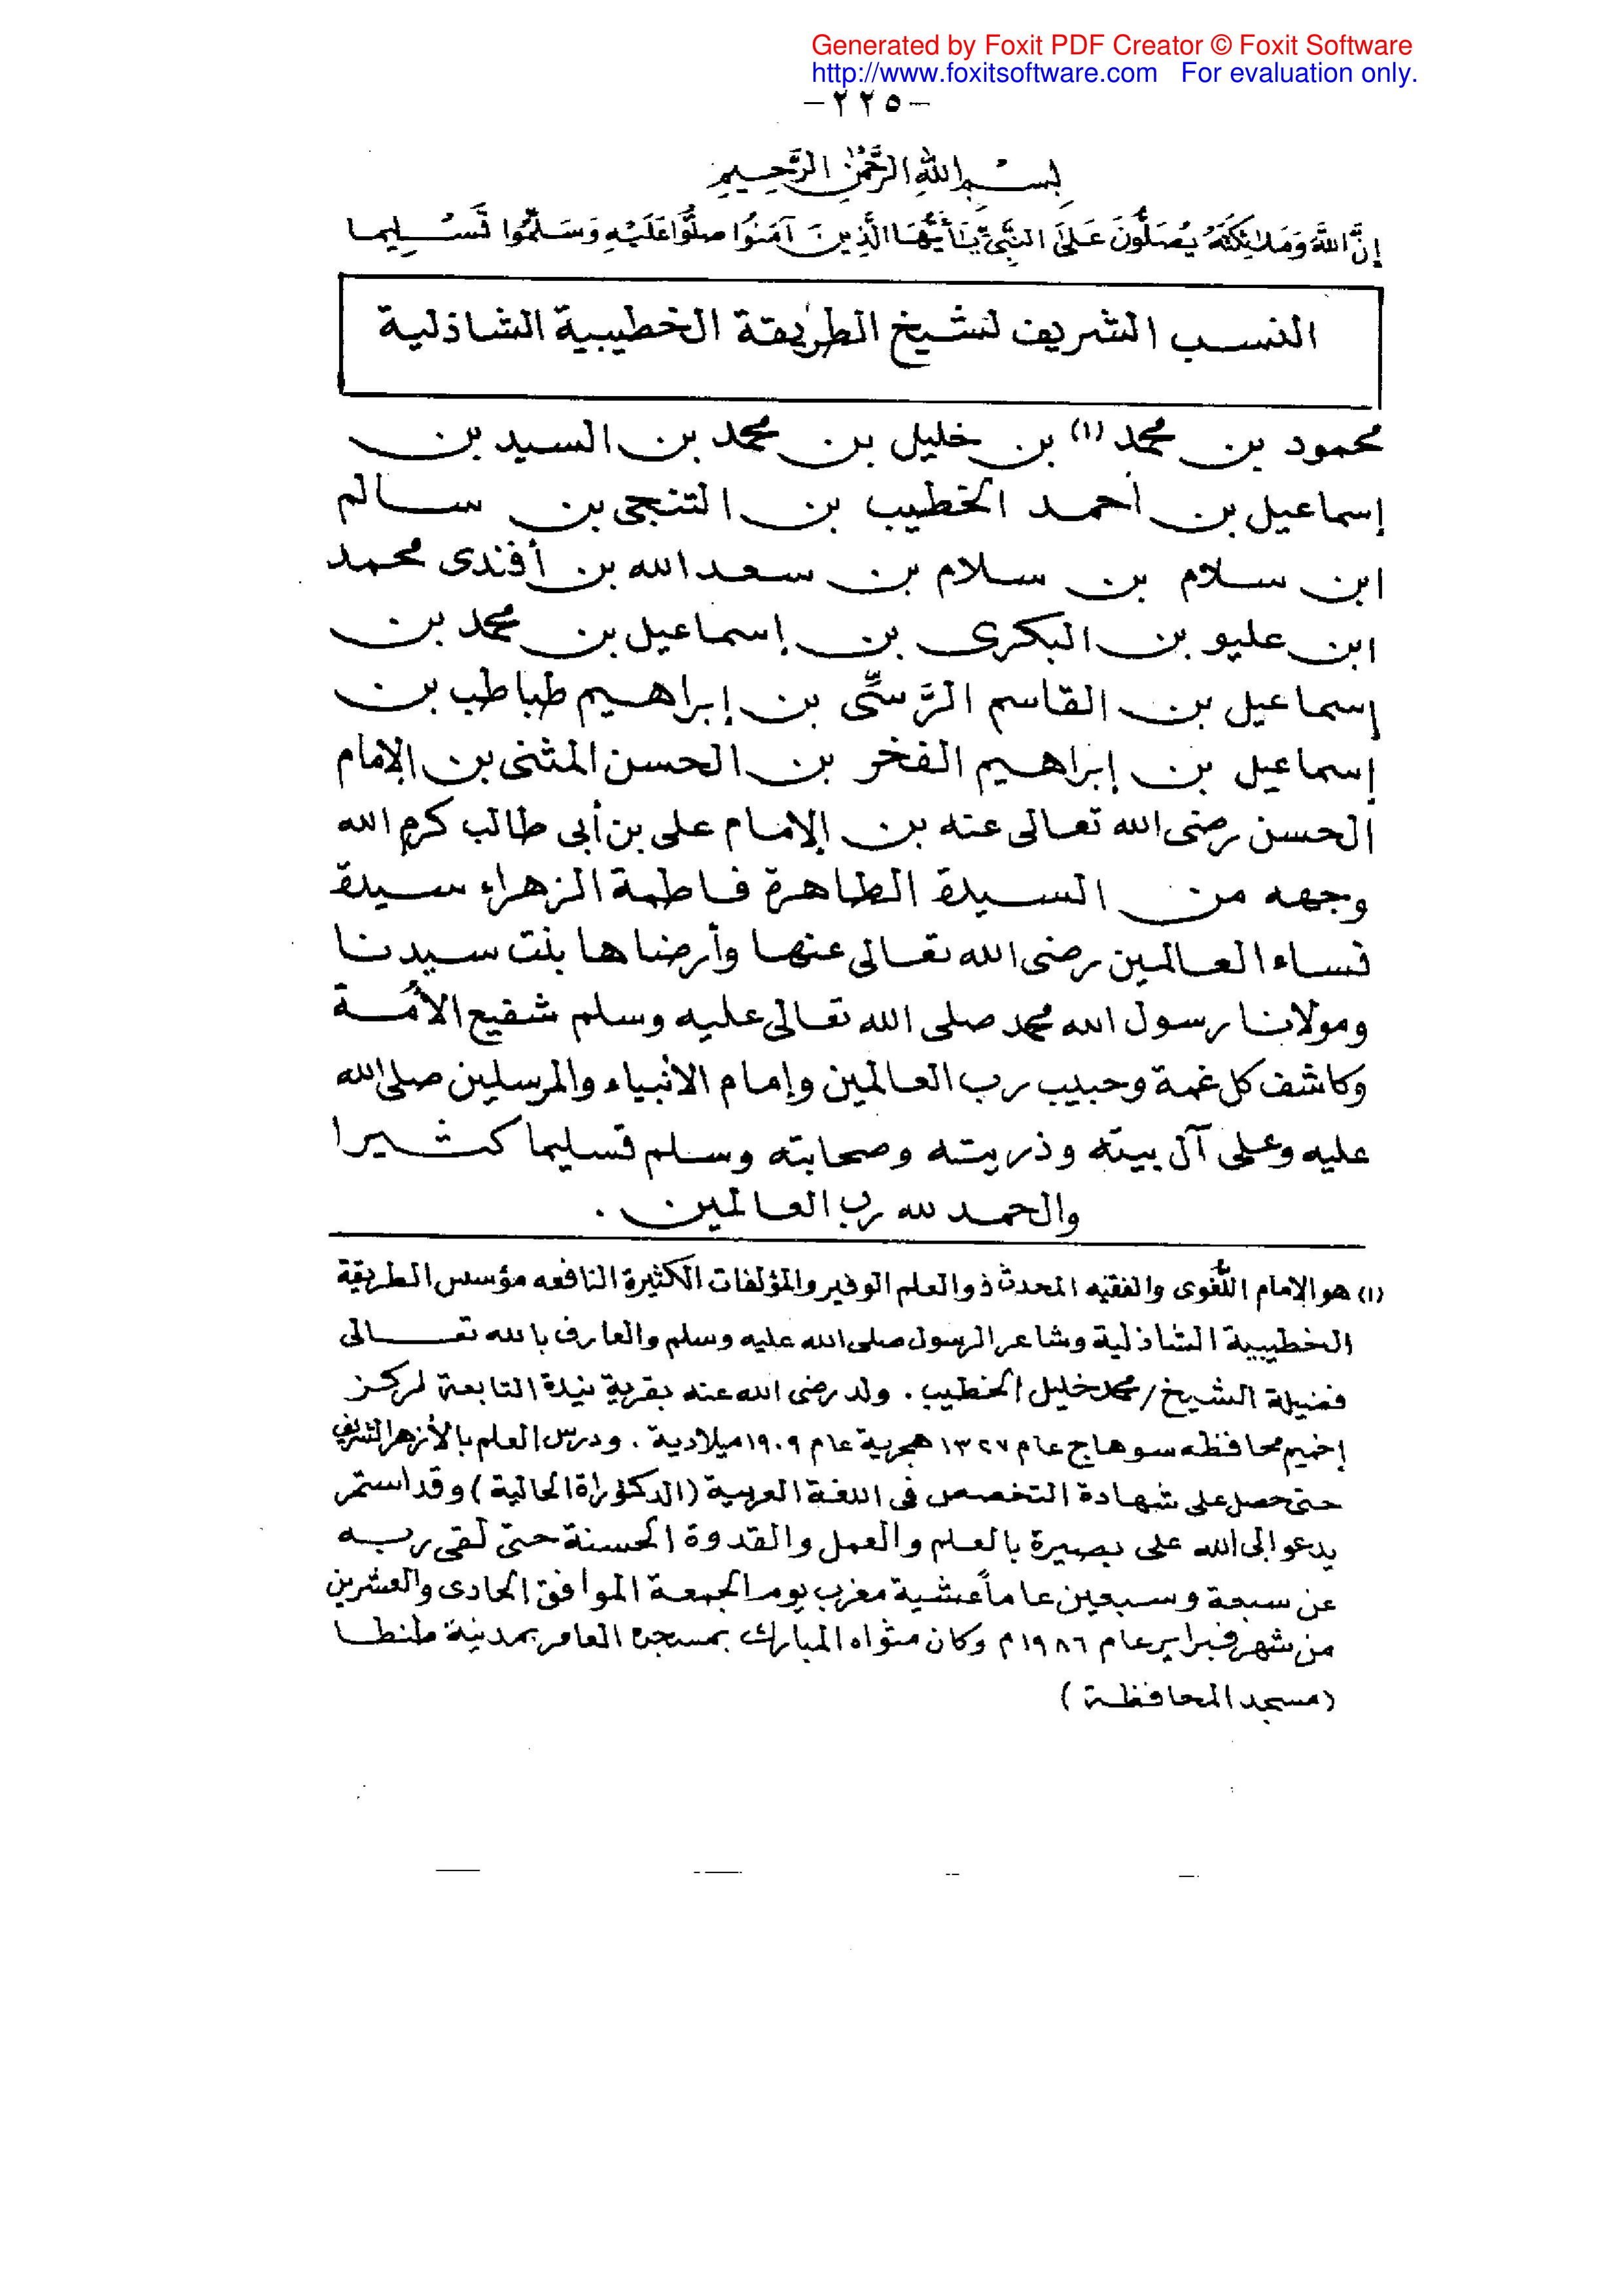 Generated by Foxit PDF Creator © Foxit Software
http://www.foxitsoftware.com For evaluation only.
-٢٢٥-
بِسْمِ اللهِ الرَّحْمٰنِ الرَّحِيمِ
إِنَّ اللَّهَ وَمَلَائِكَتَهُ يُصَلُّونَ عَلَى النَّبِيِّ يَا أَيُّهَا الَّذِينَ آمَنُوا صَلُّوا عَلَيْهِ وَسَلِّمُوا تَسْلِيما
النسب الشريف لشيخ الطريقة الخطيبية الشاذلية
محمود بن محمد (١) بن خليل بن محمد بن السيد بن
إسماعيل بن أحمد الخطيب بن التنجى بن سالم
ابن سلام بن سلام بن سعد الله بن أفندى محمد
ابن عليو بن البكرى بن إسماعيل بن محمد بن
إسماعيل بن القاسم الرَّسِّى بن إبراهيم طباطب بن
إسماعيل بن إبراهيم الفخر بن الحسن المثنى بن الإمام
الحسن رضى الله تعالى عنه بن الإمام على بن أبى طالب كرم الله
وجهه من السيدة الطاهرة فاطمة الزهراء سيدة
نساء العالمين رضى الله تعالى عنها وأرضاها بنت سيدنا
ومولانا رسول الله محمد صلى الله تعالى عليه وسلم شفيع الأُمة
وكاشف كل غمة وحبيب رب العالمين وإمام الأنبياء والمرسلين صلى الله
عليه وعلى آل بيته وذريته وصحابته وسلم تسليما كثيرا
والحمد لله رب العالمين .
(١) هو الإمام اللُّغوى والفقيه المحدث ذو العلم الوفير والمؤلفات الكثيرة النافعه مؤسس الطريقة
الخطيبية الشاذلية وشاعر الرسول صلى الله عليه وسلم والعارف بالله تعالى
فضيلة الشيخ / محمد خليل الخطيب . ولد رضى الله عنه بقرية نيدة التابعة لمركز
إخميم محافظه سوهاج عام ١٣٢٧ هجرية عام ١٩٠٩ ميلادية . ودرس العلم بالأزهر الشريف
حتى حصل على شهادة التخصص فى اللغة العربية (الدكتوراة الحالية) وقد استمر
يدعو إلى الله على بصيرة بالعلم والعمل والقدوة الحسنة حتى لقى ربه
عن سبعة وسبعين عاماً عشية مغرب يوم الجمعة الموافق الحادى والعشرين
من شهر فبراير عام ١٩٨٦ م وكان مثواه المبارك بمسجده العامر بمدينة طنطا
(مسجد المحافظة)